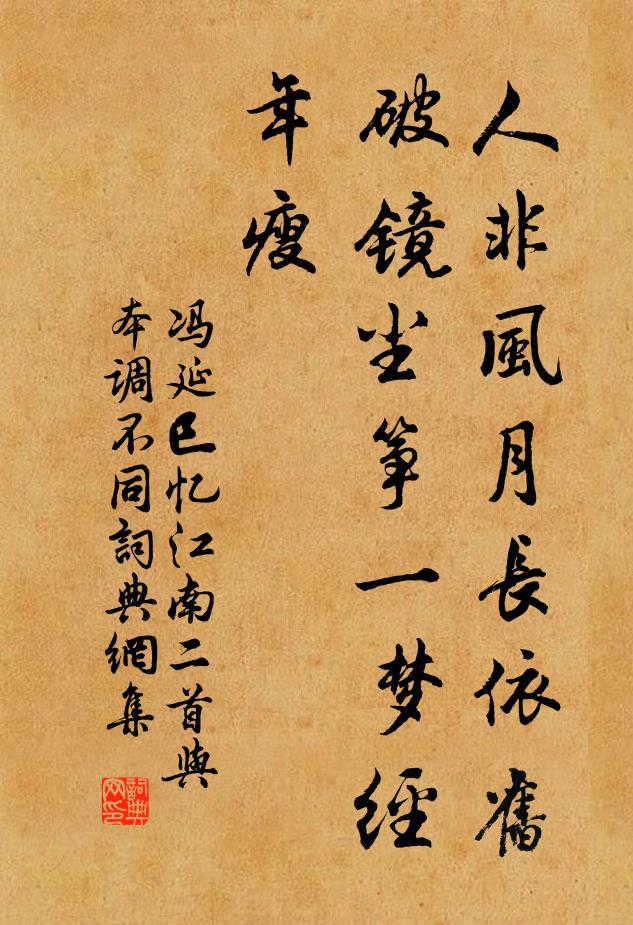 人非風月長依舊
破镜尘筝一梦經
年瘦
冯延巳忆江南二首與
本调不同詞典網集
詞典网印